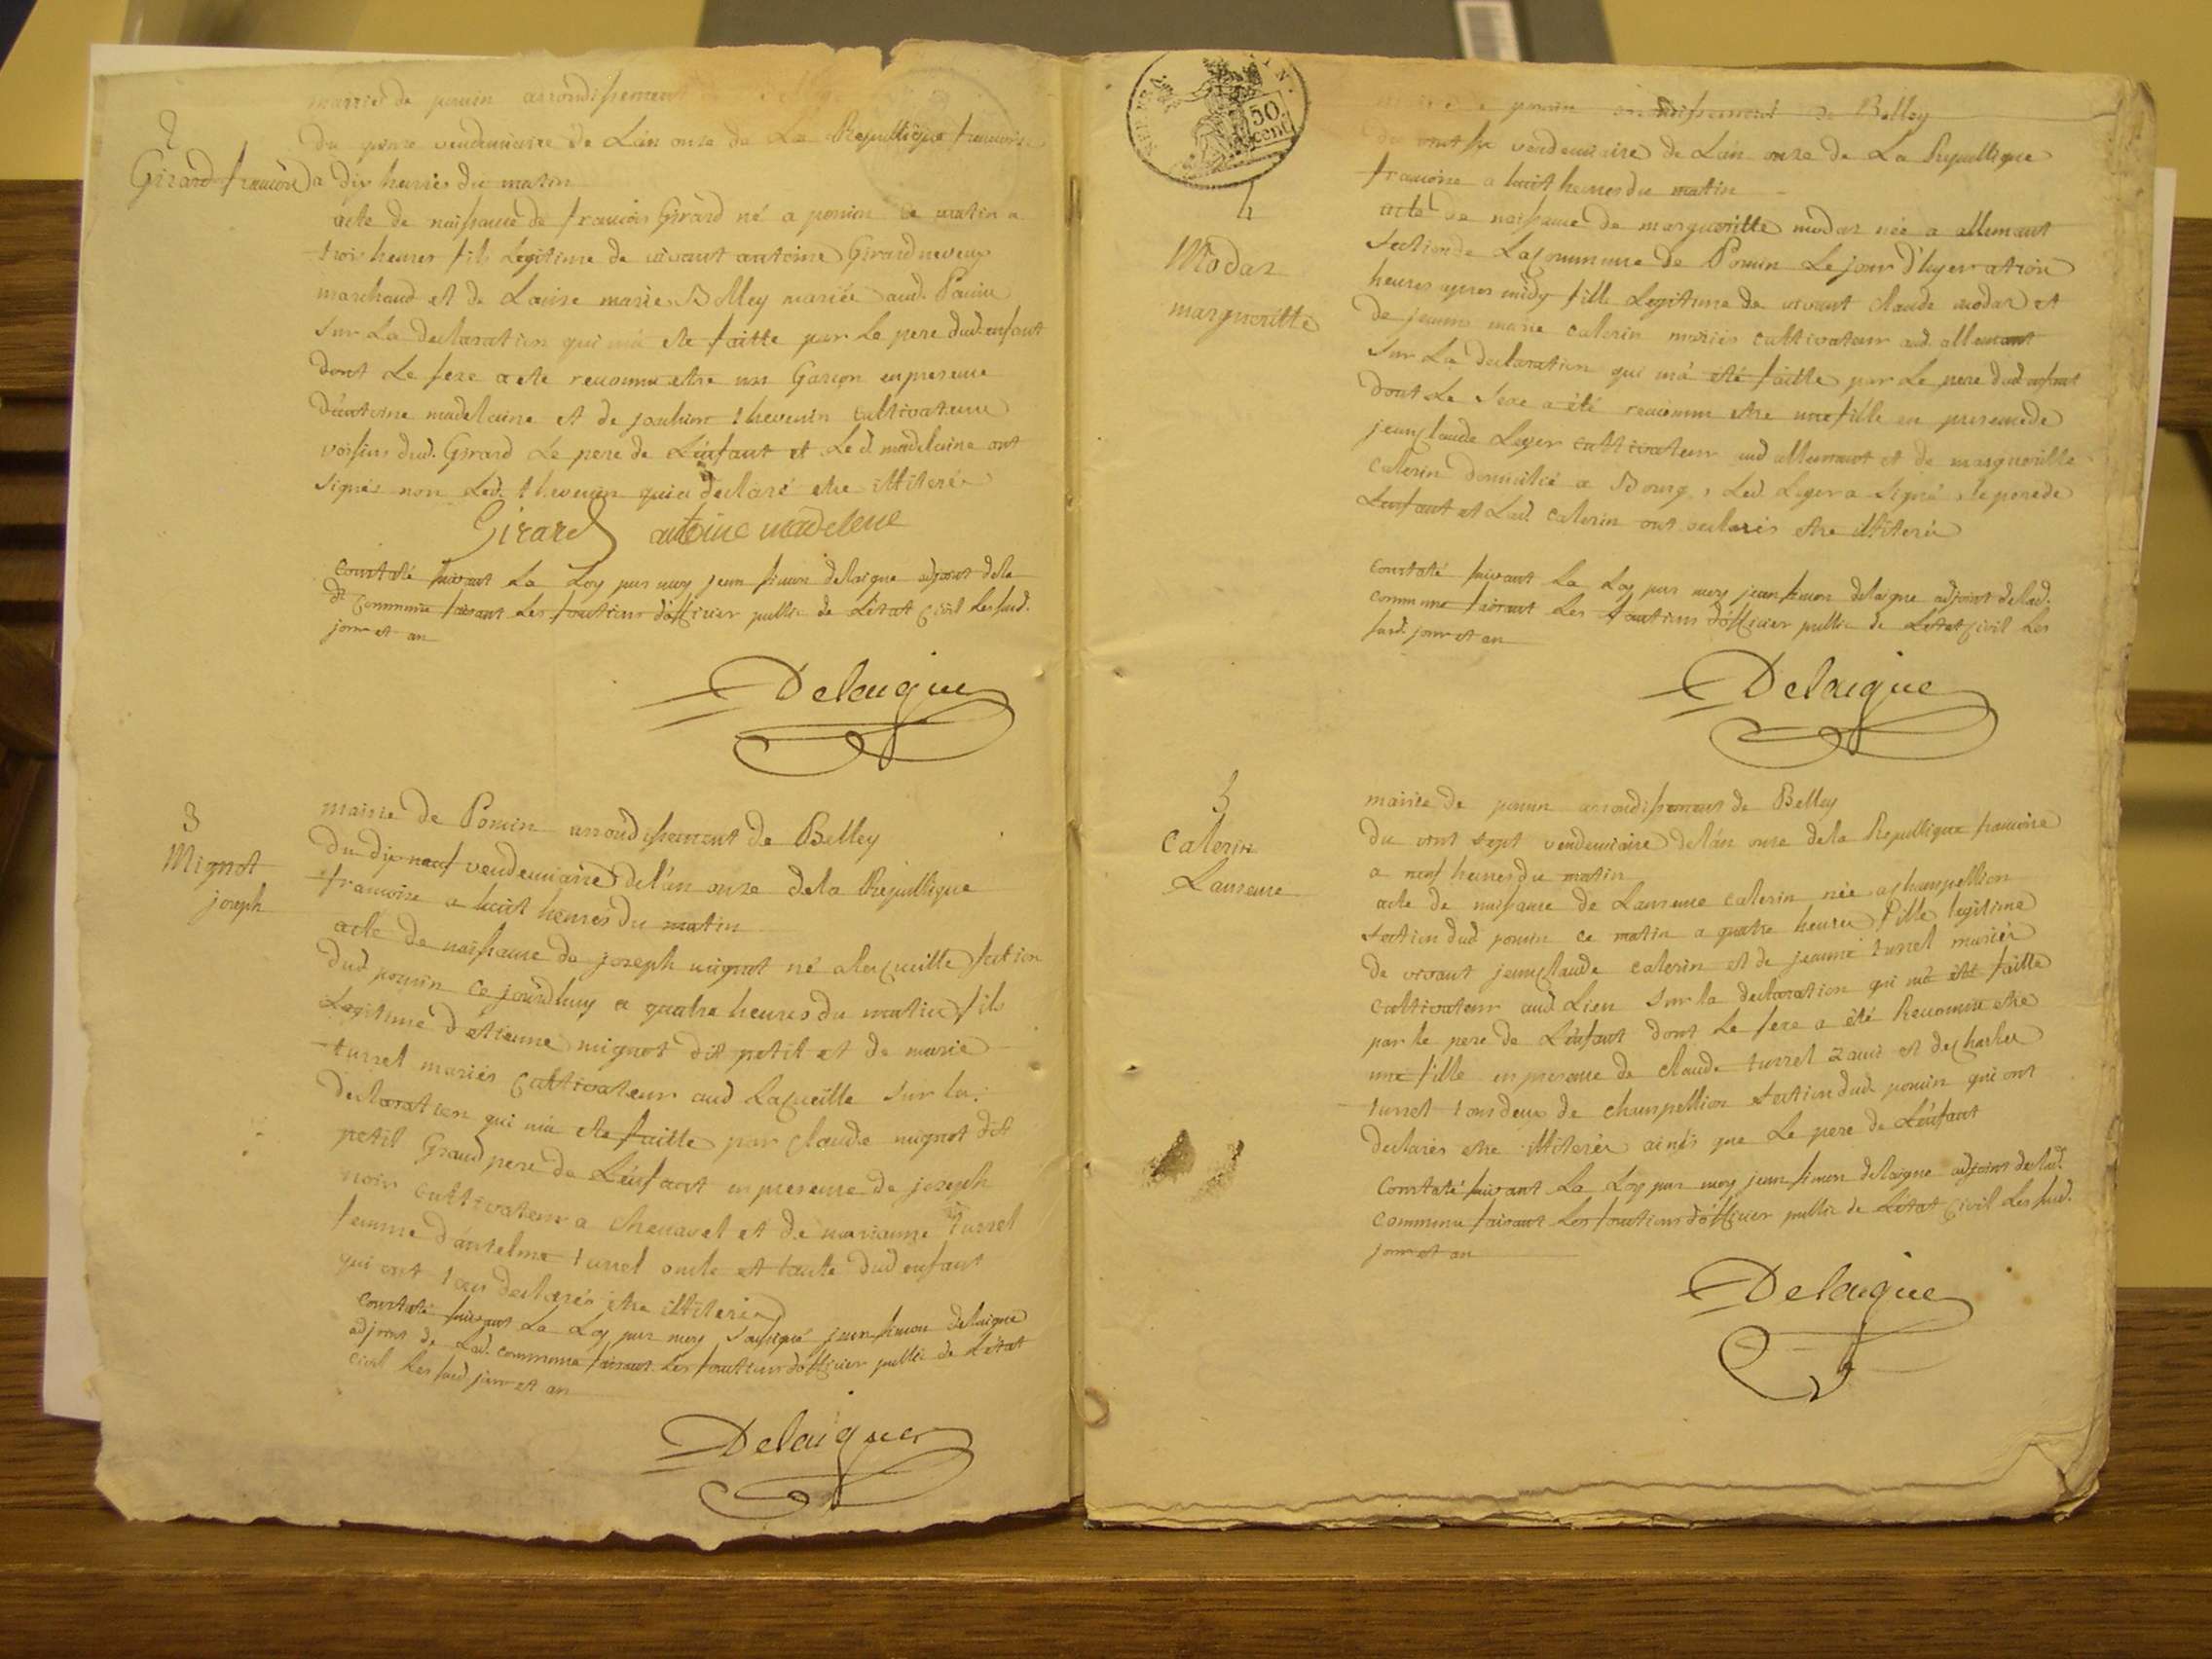 mairie de poncin arrondissement de
2
du onze vendemiaire de L'an onze de La Republique francoise
Girard francois
a dix heures du matin
acte de naissance de francois Girard né a poncin ce matin a
trois heures fils Legitime de vivant antoine Girard neveux
marchand et de Louise marie Billiey mariés aud. Poncin
sur La declaration qui m'a ete faitte par Le pere dud. enfant
dont Le sexe a ete reconnu etre un Garçon en presence
d'antoine madelaine et de joachim thevenin cultivateur
voisins dud. Girard Le pere de L'enfant et Led. madelaine ont
signés non Led. thevenin qui a declaré etre illiteré
Girard antoine madelene
constaté suivant La Loy par moy jean simon delaigue adjoint de la
de commune faisant Les fonctions d'officier public de L'etat civil Les sud.
jour et an
Delaigue
3
Mignot
joseph
mairie de Poncin arrondissement de Belley
Du dix neuf vendemiaire de l'an onze de la Republique
francoise a huit heures du matin
acte de naissance de joseph mignot né a Lacueille section
dud poncin ce jourdhuy a quatre heures du matin fils
Legitime d'etienne mignot dit petit et de marie
turrel mariés Cultivateur aud Lacueille sur la
declaration qui m'a ete faitte par Claude mignot dit
petit Grand pere de L'enfant en presence de joseph
noir cultivateur a chenavel et de marianne turrel
femme d'antelme turrel oncle et tante dud enfant
qui ont tous declarés etre illiterés
constaté suivant La Loy par moy soussigné jean simon delaigue
adjoint de Lad. commune faisant Les fonctions d'officier public de L'etat
civil Les sud. jour et an
Delaigue
REP. FRA.
50
cent.
mairie de poncin arrondissement de Belley
du vint six vendemiaire de L'an onze de La Republique
francoise a huit heures du matin
4
Modaz
margueritte
acte de naissance de margueritte modaz née a allemant
section de La Commune de Poncin Le jour d'hyer a trois
heures apres midy fille Legitime de vivant Claude modaz et
de jeanne marie calerin mariés cultivateur aud. allemant
sur La declaration qui m'a eté faitte par Le pere dud enfant
dont Le sexe a été reconnu etre une fille en presence de
jean Claude Leger cultivateur aud allemant et de margueritte
calerin domicilié a Bourg, Led. Leger a signé, le pere de
L'enfant et Lad. calerin ont declarés etre illiterés
constaté suivant La Loy par moy jean simon delaigue adjoint de Lad.
commune faisant Les fonctions d'officier public de L'etat Civil Les
sud. jour et an
Delaigue
5
Calerin
Laurence
mairie de poncin arrondissement de Belley
du vint sept vendemiaire de l'an onze de la Republique francoise
a neuf heures du matin
acte de naissance de Laurence calerin née a champellion
section dud poncin ce matin a quatre heures fille legitime
de vivant jean Claude calerin et de jeanne turrel mariés
cultivateur aud Lieu sur la declaration qui m'a été faitte
par le pere de L'enfant dont Le sexe a été Reconnu etre
une fille en presence de claude turrel et de Charles
turrel tous deux de champellion section dud poncin qui ont
declarés etre illiterés ainsi que Le pere de L'enfant
Constaté suivant La Loy par moy jean simon delaigue adjoint de Lad.
commune faisant Les fonctions d'officier public de L'etat Civil Les sud.
jour et an
Delaigue